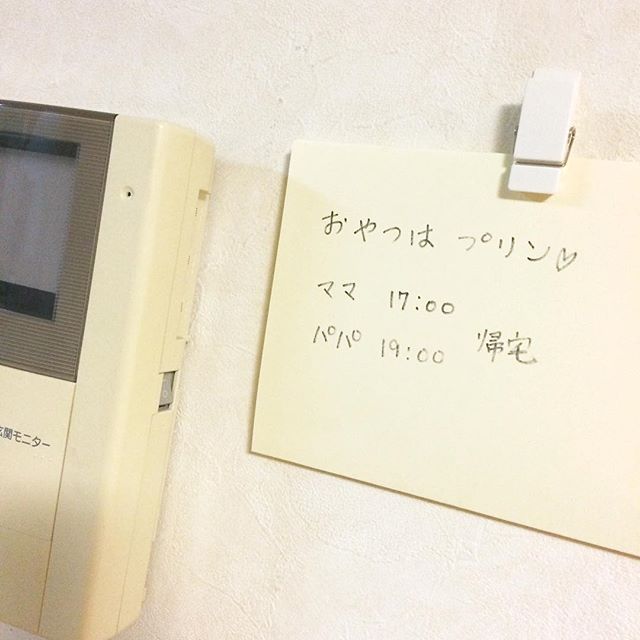 おやつは プリン♡
ママ 17:00
パパ 19:00 帰宅
玄関モニター